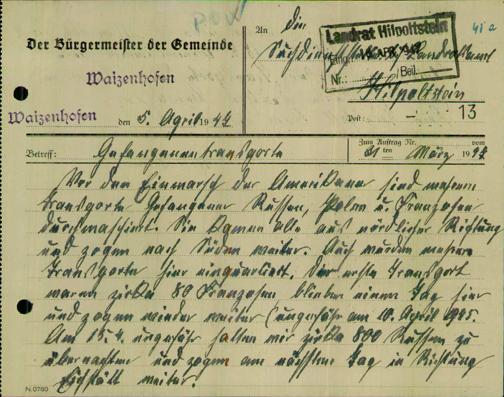 POW
Der Bürgermeister der Gemeinde
Waizenhofen
Waizenhofen den 5. April 1947
An die
Suchdienststelle Landratsamt
Hilpoltstein
Landrat Hilpoltstein
APR. 1947
Nr.: Beil.
41a
Post: 13
Betreff: Gefangenentransporte
Zum Auftrag Nr. vom
21 ten März 1947
Vor dem Einmarsch der Amerikaner sind mehrere
transporte Gefangener Russen, Polen u. Franzosen
durchmarschiert. Sie kamen alle aus nördlicher Richtung
und zogen nach Süden weiter. Auch wurden mehrere
transporte hier einquartiert. Der erste Transport
waren zirka 80 Franzosen blieben einen Tag hier
und zogen wieder weiter (ungefähr am 10. April 1945.
Am 15.4. ungefähr hatten wir zirka 800 Russen zu
übernachten und zogen am nächsten Tag in Richtung
Eichstätt weiter.
N:0760